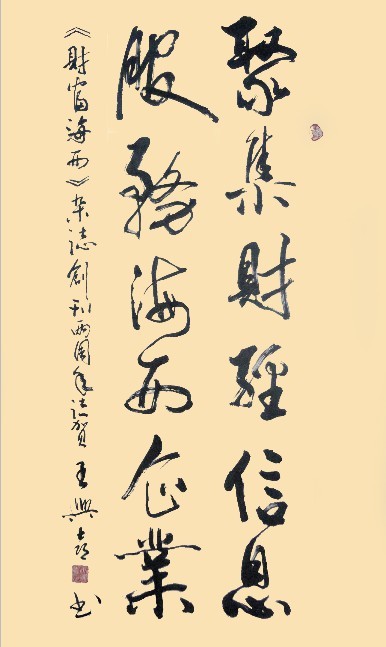 聚集財經信息
服務海西企業
《財富海西》杂誌創刊兩周年誌賀 王興 书